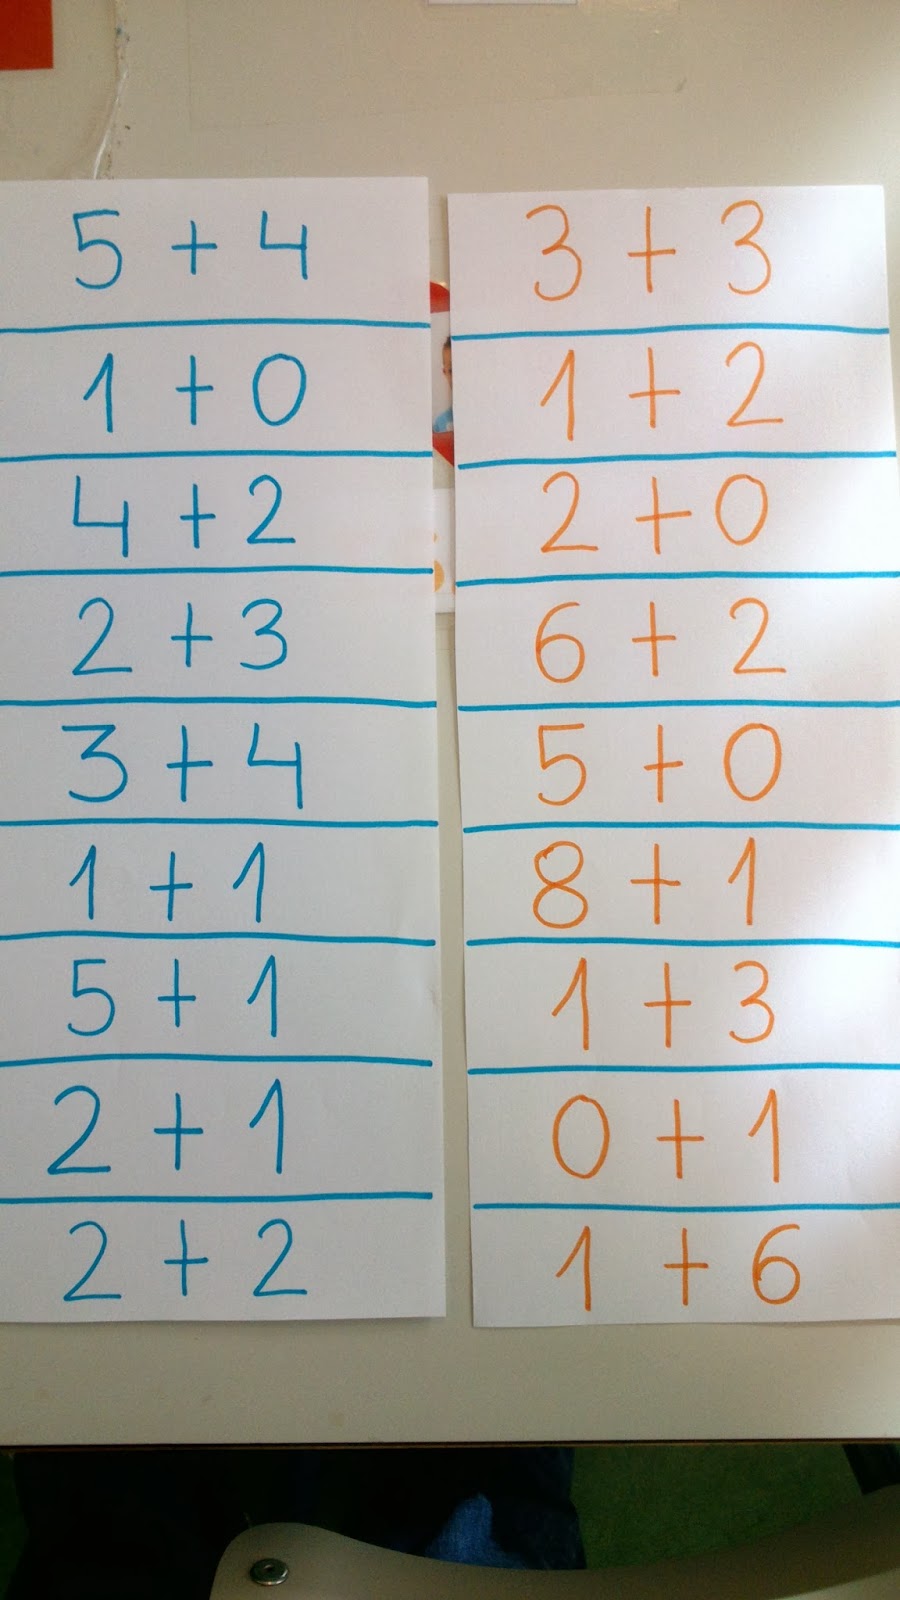 5 + 4
1 + 0
4 + 2
2 + 3
3 + 4
1 + 1
5 + 1
2 + 1
2 + 2
3 + 3
1 + 2
2 + 0
6 + 2
5 + 0
8 + 1
1 + 3
0 + 1
1 + 6